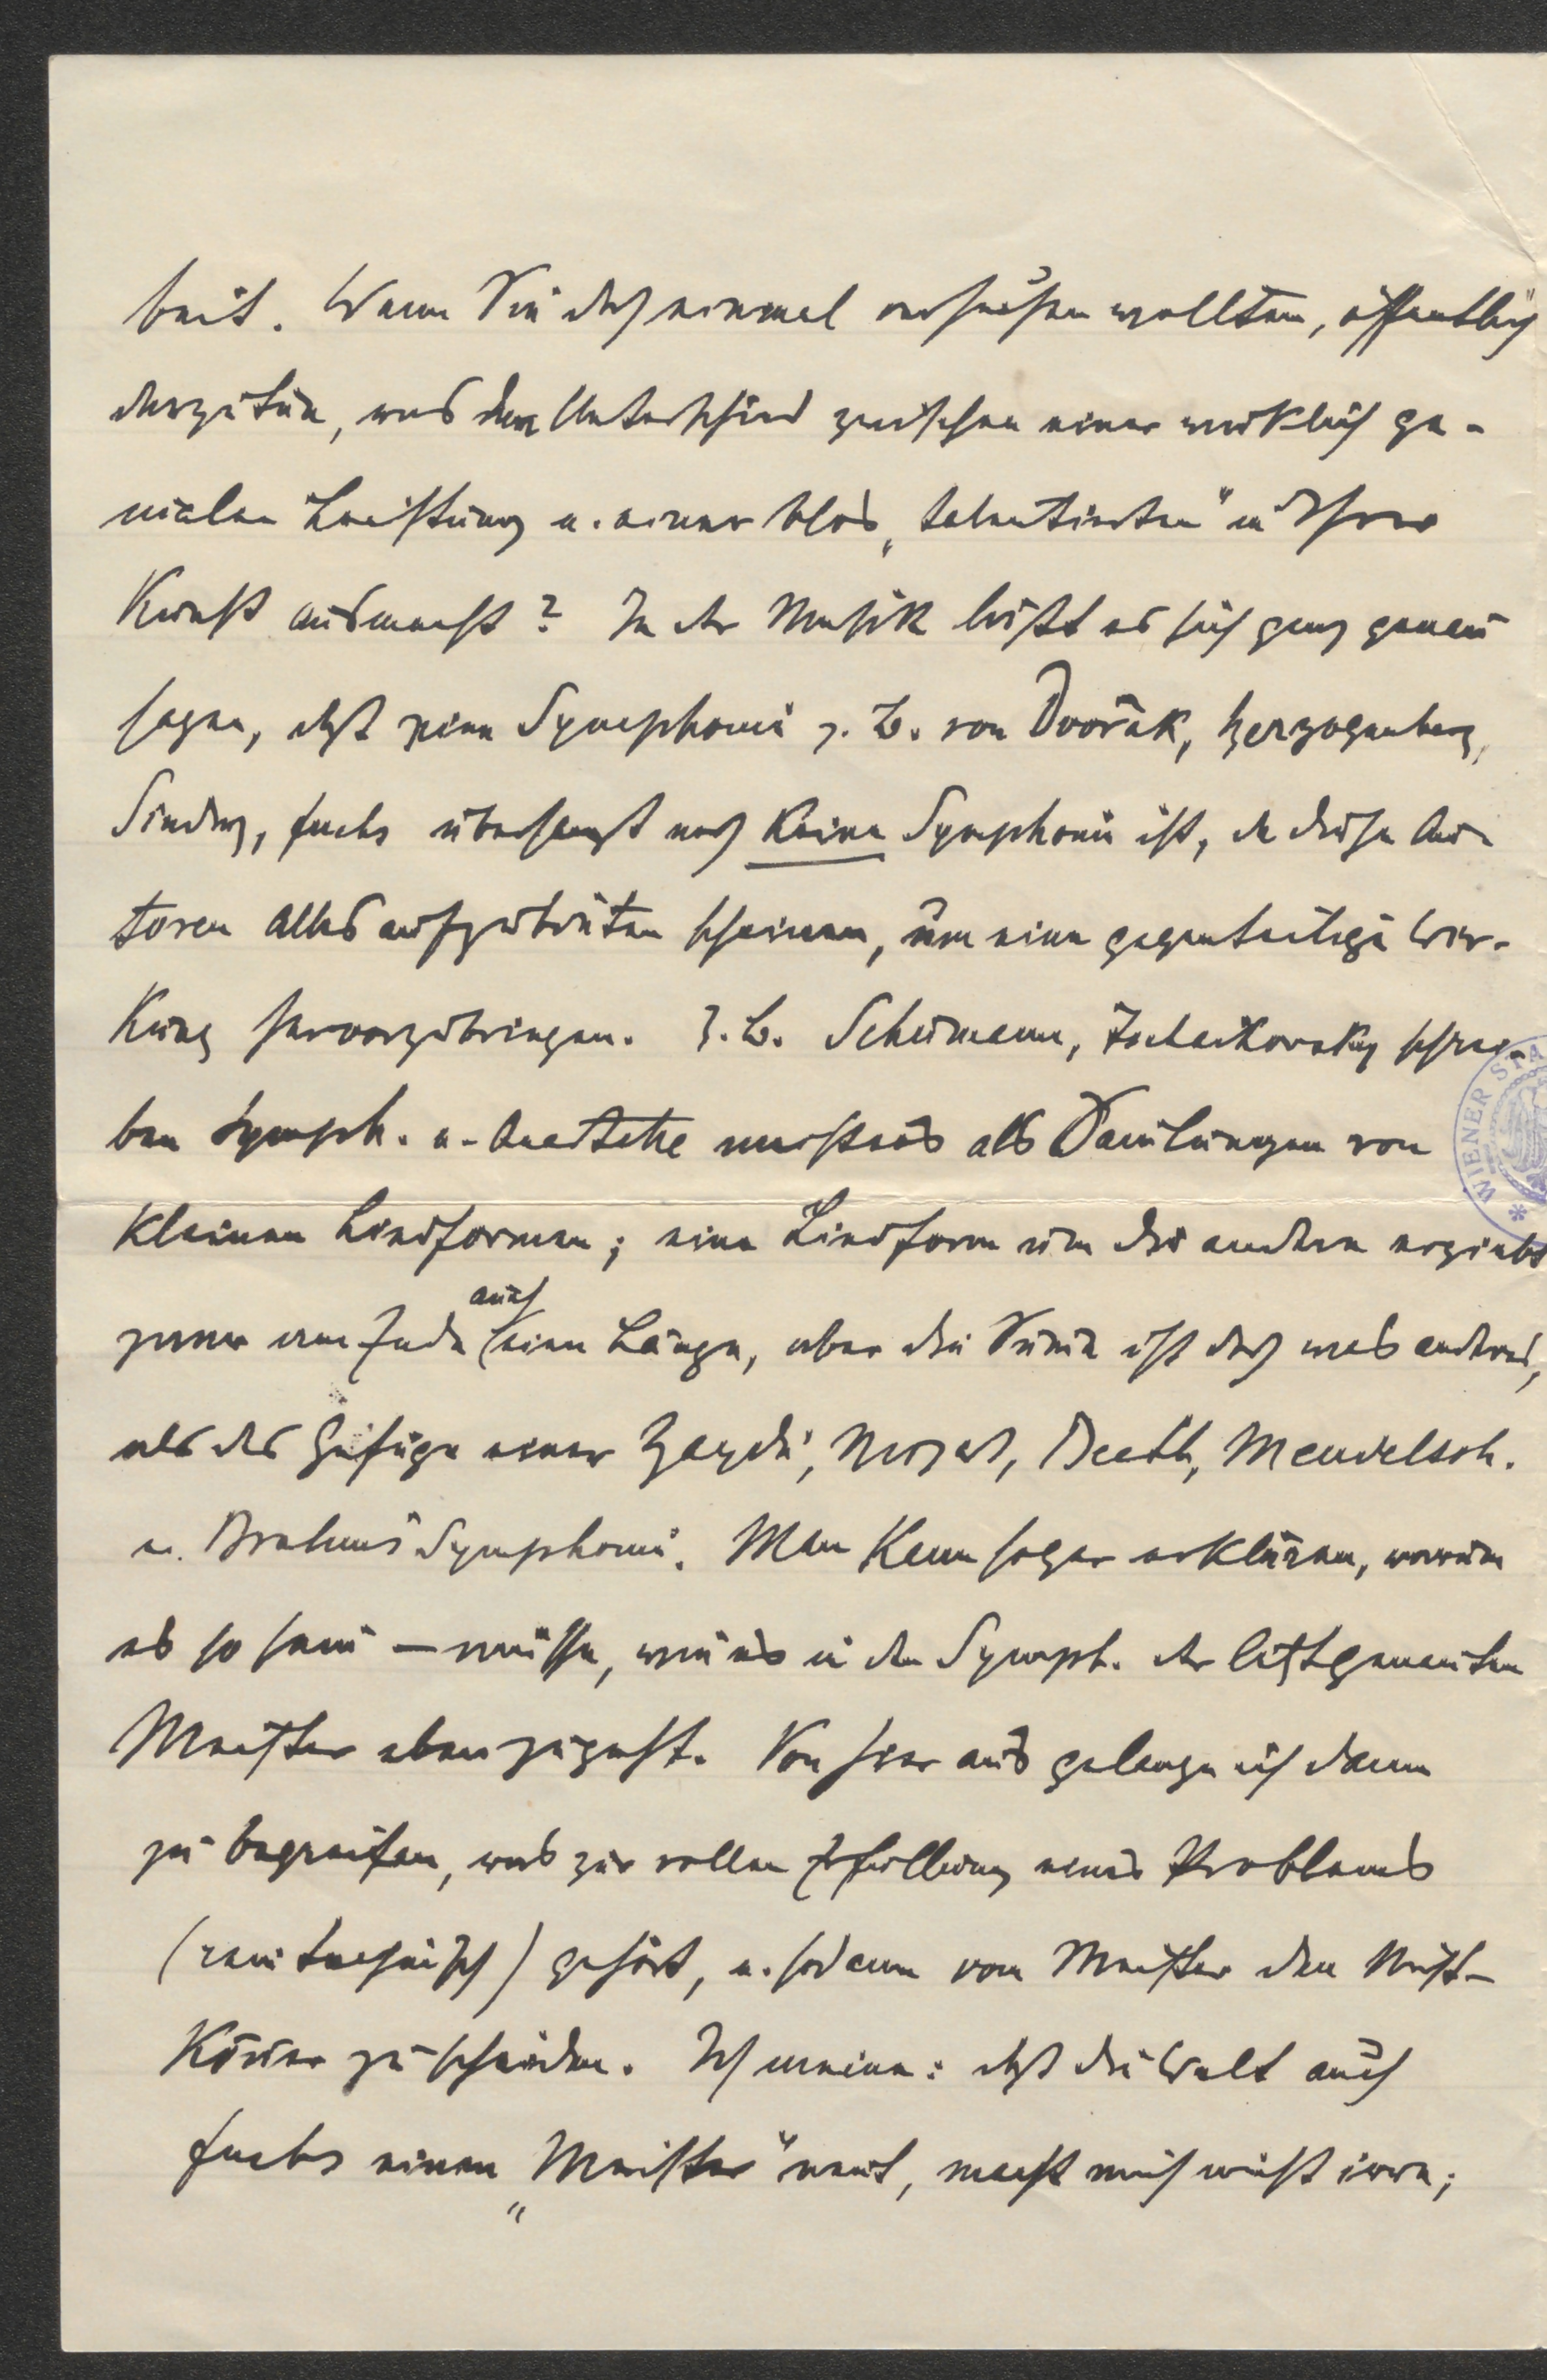 beit. Wenn Sie doch einmal versuchen wollten, öffentlich
darzutun, was den Unterschied zwischen einer wirklich ge-
nialen Leistung u. einer blos „talentierten" in Ihrer
Kunst ausmacht? In der Musik läßt es sich ganz genau
sagen, daß eine Symphonie z. B. von Dvořák, Herzogenberg,
Sinding, Fuchs überhaupt noch keine Symphonie ist, da diese Au-
toren Alles aufzubieten scheinen, um eine gegenteilige Wir-
kung hervorzubringen. Z. B. Schumann, Tschaikovsky schrei-
ben Symph. u. Quartette meistens als von
kleinen Liedformen; eine Liedform um die andere ergiebt
zwar am Ende auch eine Länge, aber die Summe ist doch was anderes,
als das Gefüge einer Haydn', Mozart, Beeth, Mendelsoh.
u. Brahms' Symphonie. Man kann sogar erklären, warum
es so sein – müsse, wie es in den Symph. der letztgenannten
Meister eben zugeht. Von hier aus gelange ich dann
zu begreifen, was zur vollen Erfüllung eines Problems
(rein technisch) gehört, u. sodann vom Meister den Nicht-
könner zu scheiden. Ich meine: daß die Welt auch
Fuchs einen „Meister" nennt, macht mich nicht irre;
WIENER STA